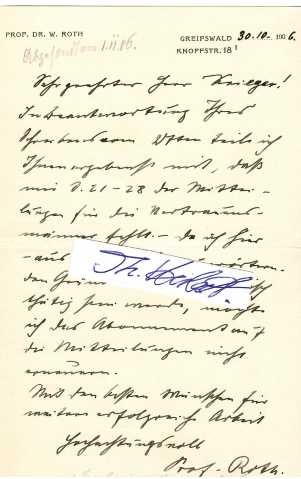 PROF. DR. W. ROTH
GREIFSWALD 30.10. 1906.
KNOPFSTR. 18 I
1.11.06.
Sehr geehrter Herr Krieger!
In Beantwortung Ihres
Schreibens vom teile ich
Ihnen ergebenst mit, daß
mir 8.21–28 der Mittei-
lungen für die Vertrauens-
männer fehlt. – da ich hier
– aus
den
thätig sein werde, möchte
ich das Abonnement auf
die Mitteilungen nicht
erneuern.
Mit den besten Wünschen für
weitere erfolgreiche Arbeit
Hochachtungsvoll
Prof. Roth.